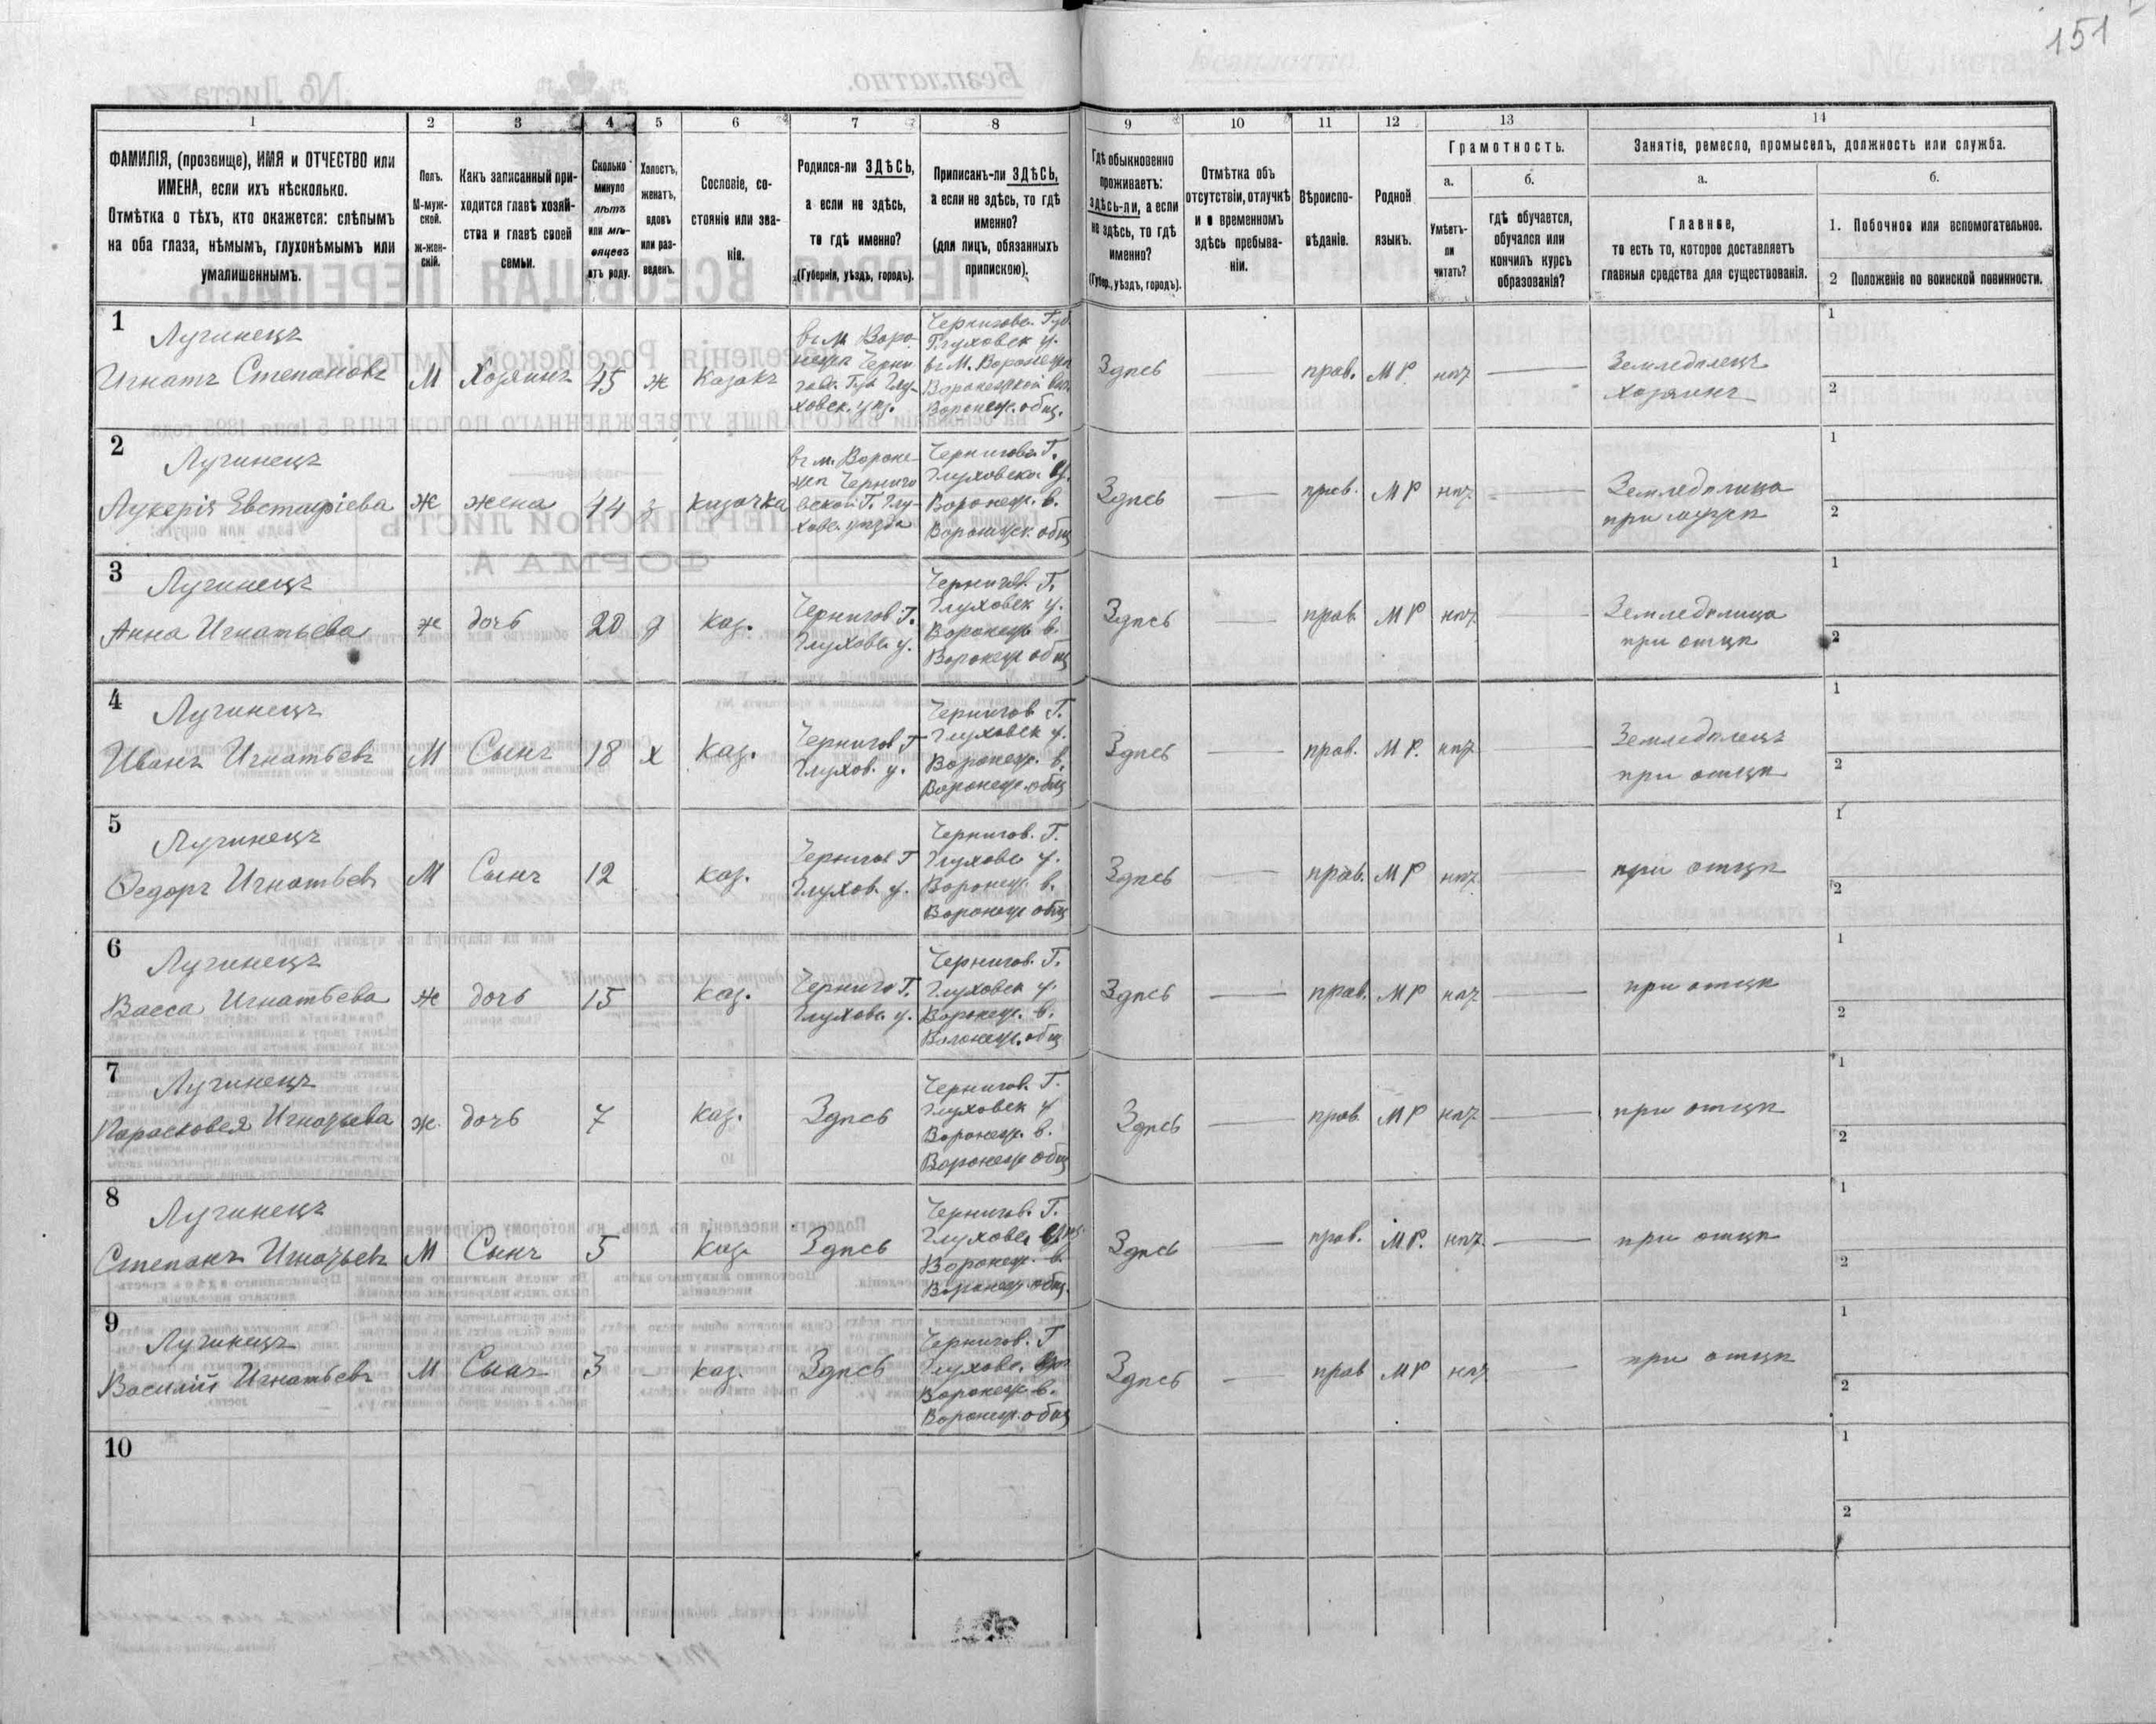 151
1
2
3
4
5
6
7
8
9
10
11
12
13
14
ФАМИЛІЯ, (прозвище), ИМЯ и ОТЧЕСТВО или
ИМЕНА, если ихъ нѣсколько.
Отмѣтка о тѣхъ, кто окажется: слѣпымъ
на оба глаза, нѣмымъ, глухонѣмымъ или
умалишеннымъ.
Полъ.
М-муж-
ской.
ж-жен-
скій.
Какъ записанный при-
ходится главѣ хозяй-
ства и главѣ своей
семьи.
Сколько
минуло
лѣтъ
или мѣ-
сяцевъ
отъ роду.
Холостъ,
женатъ,
вдовъ
или раз-
веденъ.
Сословіе, со-
стояніе или зва-
ніе.
Родился-ли ЗДѢСЬ,
а если не здѣсь,
то гдѣ именно?
(Губернія, уѣздъ, городъ).
Приписанъ-ли ЗДѢСЬ,
а если не здѣсь, то гдѣ
именно?
(для лицъ, обязанныхъ
припискою).
Гдѣ обыкновенно
проживаетъ:
здѣсь-ли, а если
не здѣсь, то гдѣ
именно?
(Губер., уѣздъ, городъ).
Отмѣтка объ
отсутствіи, отлучкѣ
и о временномъ
здѣсь пребыва-
ніи.
Вѣроиспо-
вѣданіе.
Родной
языкъ.
Грамотность.
а.
Умѣетъ-
ли
читать?
б.
гдѣ обучается,
обучался или
кончилъ курсъ
образованія?
Занятіе, ремесло, промыселъ, должность или служба.
а.
Главное,
то есть то, которое доставляетъ
главныя средства для существованія.
б.
1. Побочное или вспомогательное.
2 Положеніе по воинской повинности.
1
Лучинецъ
Игнатъ Степановъ
М
Хозяинъ
45
ж
Казакъ
въ м. Воро-
нежѣ Черни-
гов. Губ Глу-
ховск. уѣз.
Черниговс. Губ.
Глуховск у.
въ М. Воронежѣ
Воронежской вол.
Воронеж. общ.
Здѣсь
прав.
М Р.
нѣт
Земледѣлецъ
хозяинъ
1
2
2
Лучинецъ
Лукерія Евстафіева
ж
жена
44
з
казачка
въ м. Вороне-
жѣ Черниго
вской Г. Глу-
ховс. уѣзда
Черниговс. Г.
Глуховско. у.
Воронеж. в.
Воронежск. общ
Здѣсь
прав.
М Р
нѣт.
Земледѣлица
при мужѣ
1
2
3
Лучинецъ
Анна Игнатьева
ж
дочь
20
д
Каз.
Чернигов. Г.
Глуховс. у.
Чернигов. Г.
Глуховск у.
Воронежъ в.
Воронеж общ
Здѣсь
прав.
М Р
нѣт.
Земледѣлица
при отцѣ
1
2
4
Лучинецъ
Иванъ Игнатьевъ
М
Сынъ
18
х
Каз.
Чернигов Г
Глухов. у.
Чернигов. Г.
Глуховск у.
Воронеж. в.
Воронеж. общ
Здѣсь
прав.
М Р.
нѣт
Земледѣлецъ
при отцѣ
1
2
5
Лучинецъ
Ѳедоръ Игнатьевъ
М
Сынъ
12
каз.
Чернигов Г
Глухов. у.
Чернигов. Г.
Глуховс у.
Воронеж. в.
Воронеж общ
Здѣсь
прав.
М Р
нѣт.
при отцѣ
1
2
6
Лучинецъ
Васса Игнатьева
ж
дочь
15
Каз.
Черниго Г.
Глуховс. у.
Чернигов. Г.
Глуховск у.
Воронеж. в.
Воронеж. общ
Здѣсь
прав.
М Р
нѣт
при отцѣ
1
2
7
Лучинецъ
Парасковея Игнатьева
ж.
дочь
7
Каз.
Здѣсь
Чернигов. Г.
Глуховск у
Воронеж. в.
Воронеж общ
Здѣсь
прав.
М Р
нѣт
при отцѣ
1
2
8
Лучинецъ
Степанъ Игнатьевъ
М
Сынъ
5
Каз
Здѣсь
Чернигов. Г.
Глуховс уѣз
Воронеж. в.
Воронеж общ.
Здѣсь
прав.
М Р.
нѣт.
при отцѣ
1
2
9
Лучинецъ
Василій Игнатьевъ
М
Сынъ
3
каз.
Здѣсь
Чернигов. Г
Глуховс. уѣз
Воронеж в.
Воронеж. общ
Здѣсь
прав
М Р
нѣт
при отцѣ
1
2
10
1
2